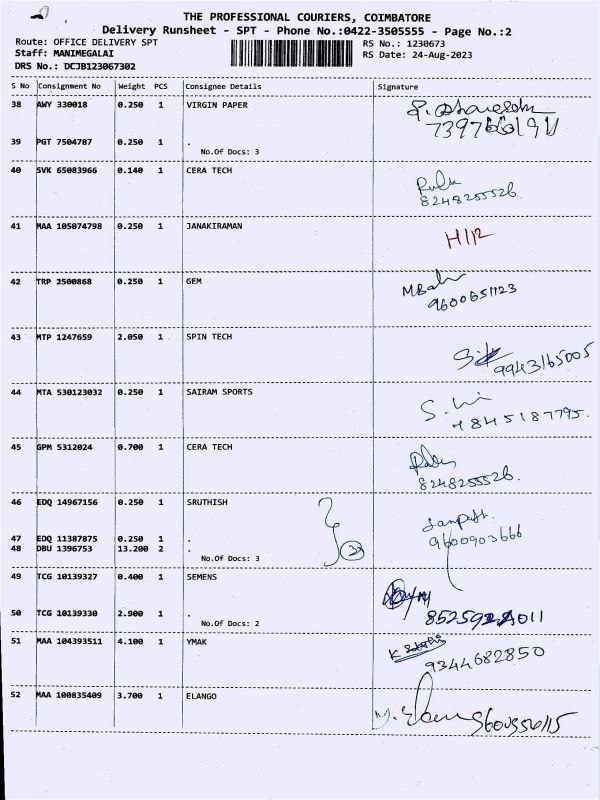 THE PROFESSIONAL COURIERS, COIMBATORE
Delivery Runsheet - SPT - Phone No.:0422-3505555 - Page No.:2
Route: OFFICE DELIVERY SPT RS No.: 1230673
Staff: MANIMEGALAI RS Date: 24-Aug-2023
DRS No.: DCJB123067302
S No Consignment No Weight PCS Consignee Details Signature
38 AWY 330018 0.250 1 VIRGIN PAPER
39 PGT 7504787 0.250 1 .
No.Of Docs: 3
40 SVK 65083966 0.140 1 CERA TECH
8248255526
41 MAA 105074798 0.250 1 JANAKIRAMAN H/R
42 TRP 2500868 0.250 1 GEM
9600651123
43 MTP 1247659 2.050 1 SPIN TECH
9943165005
44 MTA 530123032 0.250 1 SAIRAM SPORTS
45 GPM 5312024 0.700 1 CERA TECH
8248255526
46 EDQ 14967156 0.250 1 SRUTHISH
47 EDQ 11387875 0.250 1 . 9600903666
48 DBU 1396753 13.200 2 . 3
No.Of Docs: 3
49 TCG 10139327 0.400 1 SEMENS
50 TCG 10139330 2.900 1 .
No.Of Docs: 2
51 MAA 104393511 4.100 1 YMAK
9344682850
52 MAA 100835409 3.700 1 ELANGO